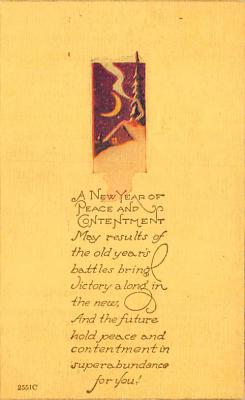 A New Year of
Peace and
Contentment
May results of
the old year's
battles bring
Victory along in
the new,
And the future
hold peace and
contentment in
superabundance
for you!
2551C